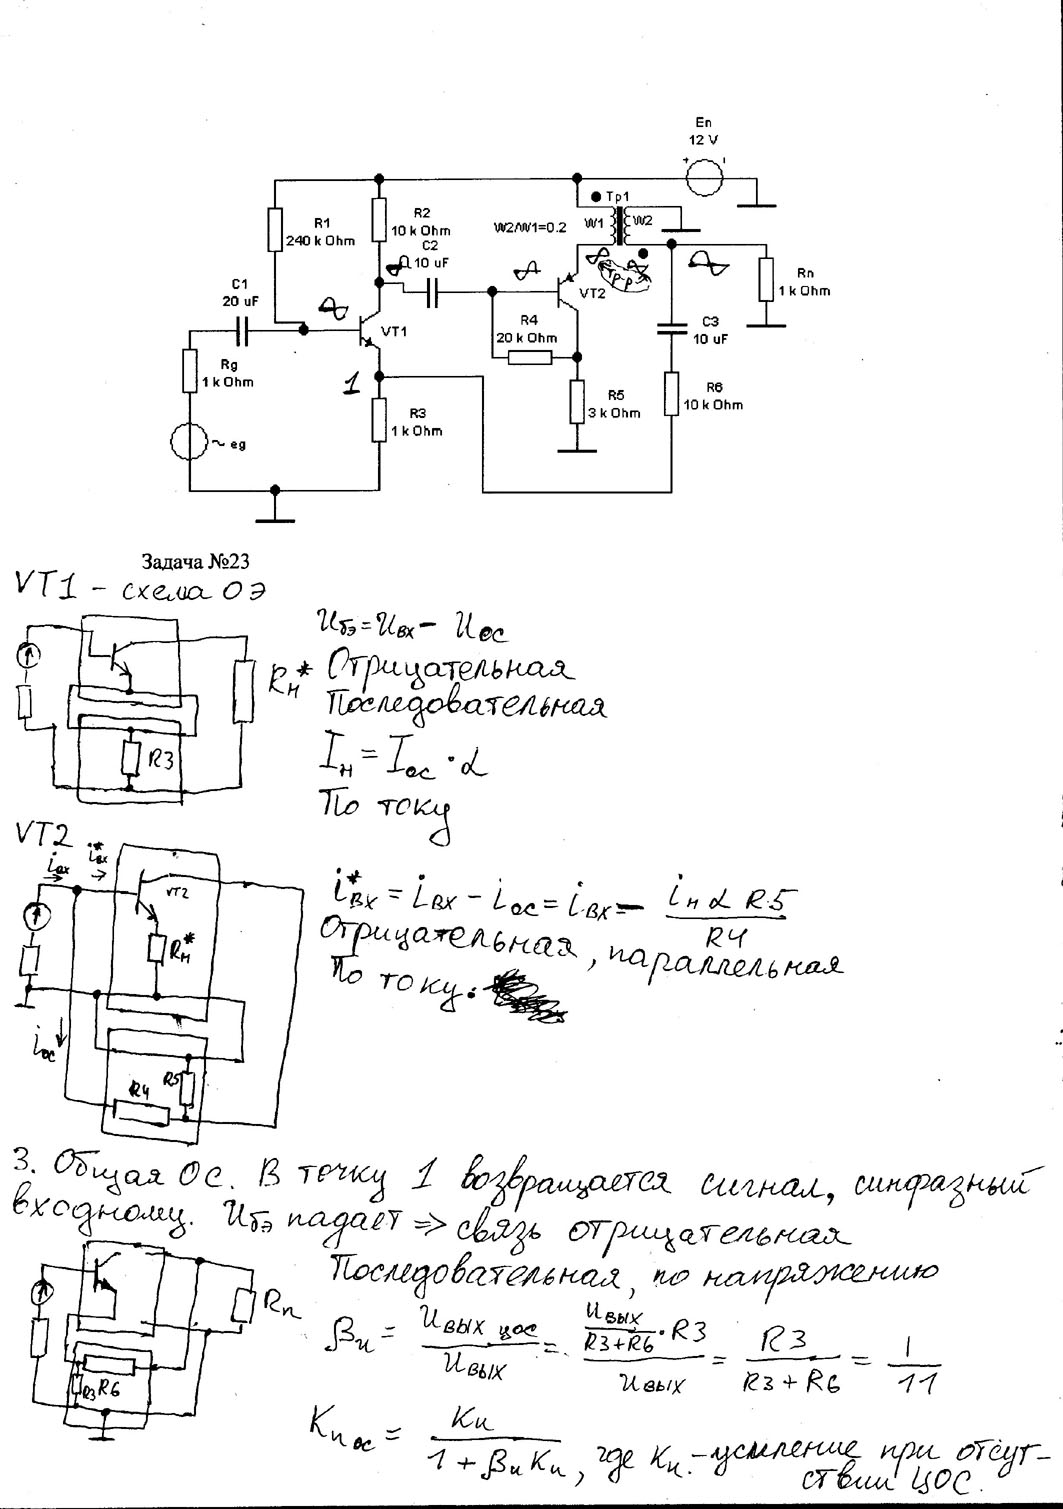 En
12 V
R1
240 k Ohm
R2
10 k Ohm
C2
10 uF
W2/W1=0.2
Tp1
W1
W2
C1
20 uF
VT1
VT2
Тр-р
Rn
1 k Ohm
R4
20 k Ohm
C3
10 uF
Rg
1 k Ohm
1
R3
1 k Ohm
R5
3 k Ohm
R6
10 k Ohm
~ eg
Задача №23
VT1 – схема ОЭ
Uбэ = Uвх – Uос
Отрицательная
Последовательная
Rн*
R3
Iн = Iос · α
По току
VT2
iвх i*вх
VT2
Rн*
i*вх = iвх – iос = iвх – iн α R5 / R4
Отрицательная, параллельная
По току.
iос
R4
R5
3. Общая ОС. В точку 1 возвращается сигнал, синфазный
входному. Uбэ падает => связь отрицательная
Последовательная, по напряжению
Rn
R3 R6
βu = Uвых цос / Uвых = (Uвых / (R3+R6) · R3) / Uвых = R3 / (R3 + R6) = 1 / 11
Kи ос = Kи / (1 + βи Kи), где Kи. – усиление при отсут-
ствии ЦОС.